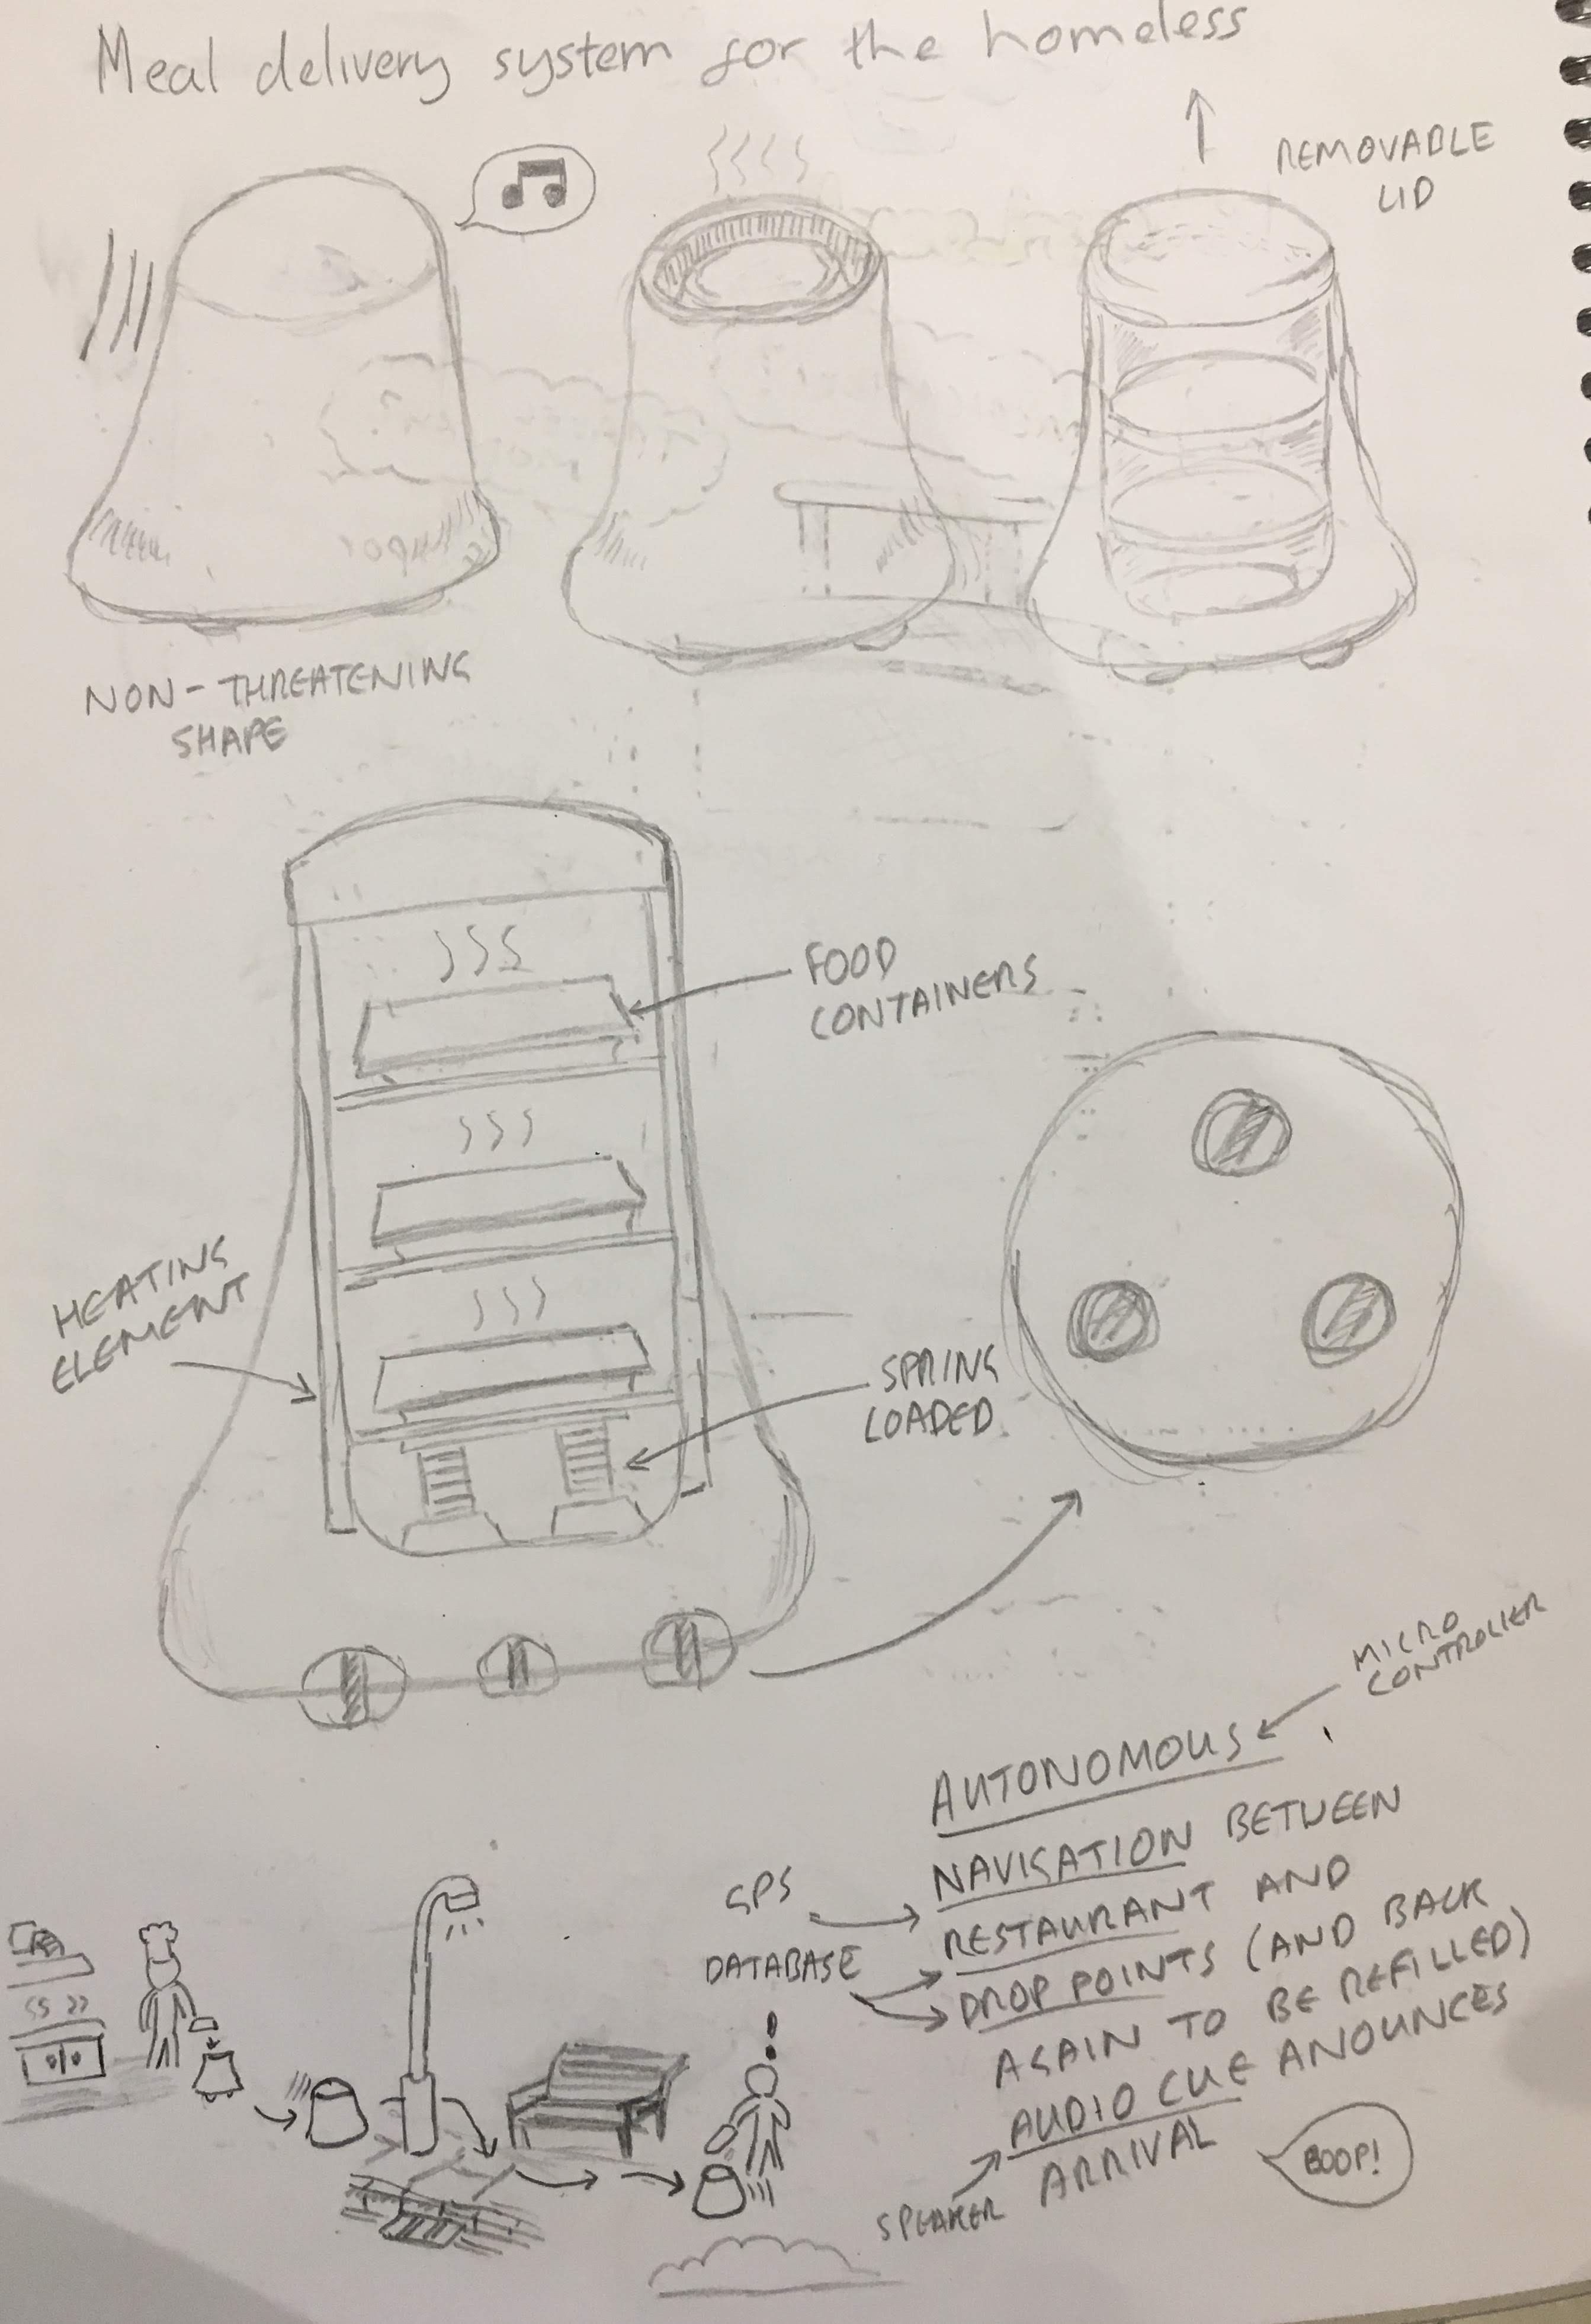 Meal delivery system for the homeless
REMOVABLE
LID
NON-THREATENING
SHAPE
FOOD
CONTAINERS
HEATING
ELEMENT
SPRING
LOADED
MICRO
CONTROLLER
AUTONOMOUS
NAVIGATION BETWEEN
RESTAURANT AND
DROP POINTS (AND BACK
AGAIN TO BE REFILLED)
AUDIO CUE ANOUNCES
ARRIVAL
GPS
DATABASE
SPEAKER
BOOP!